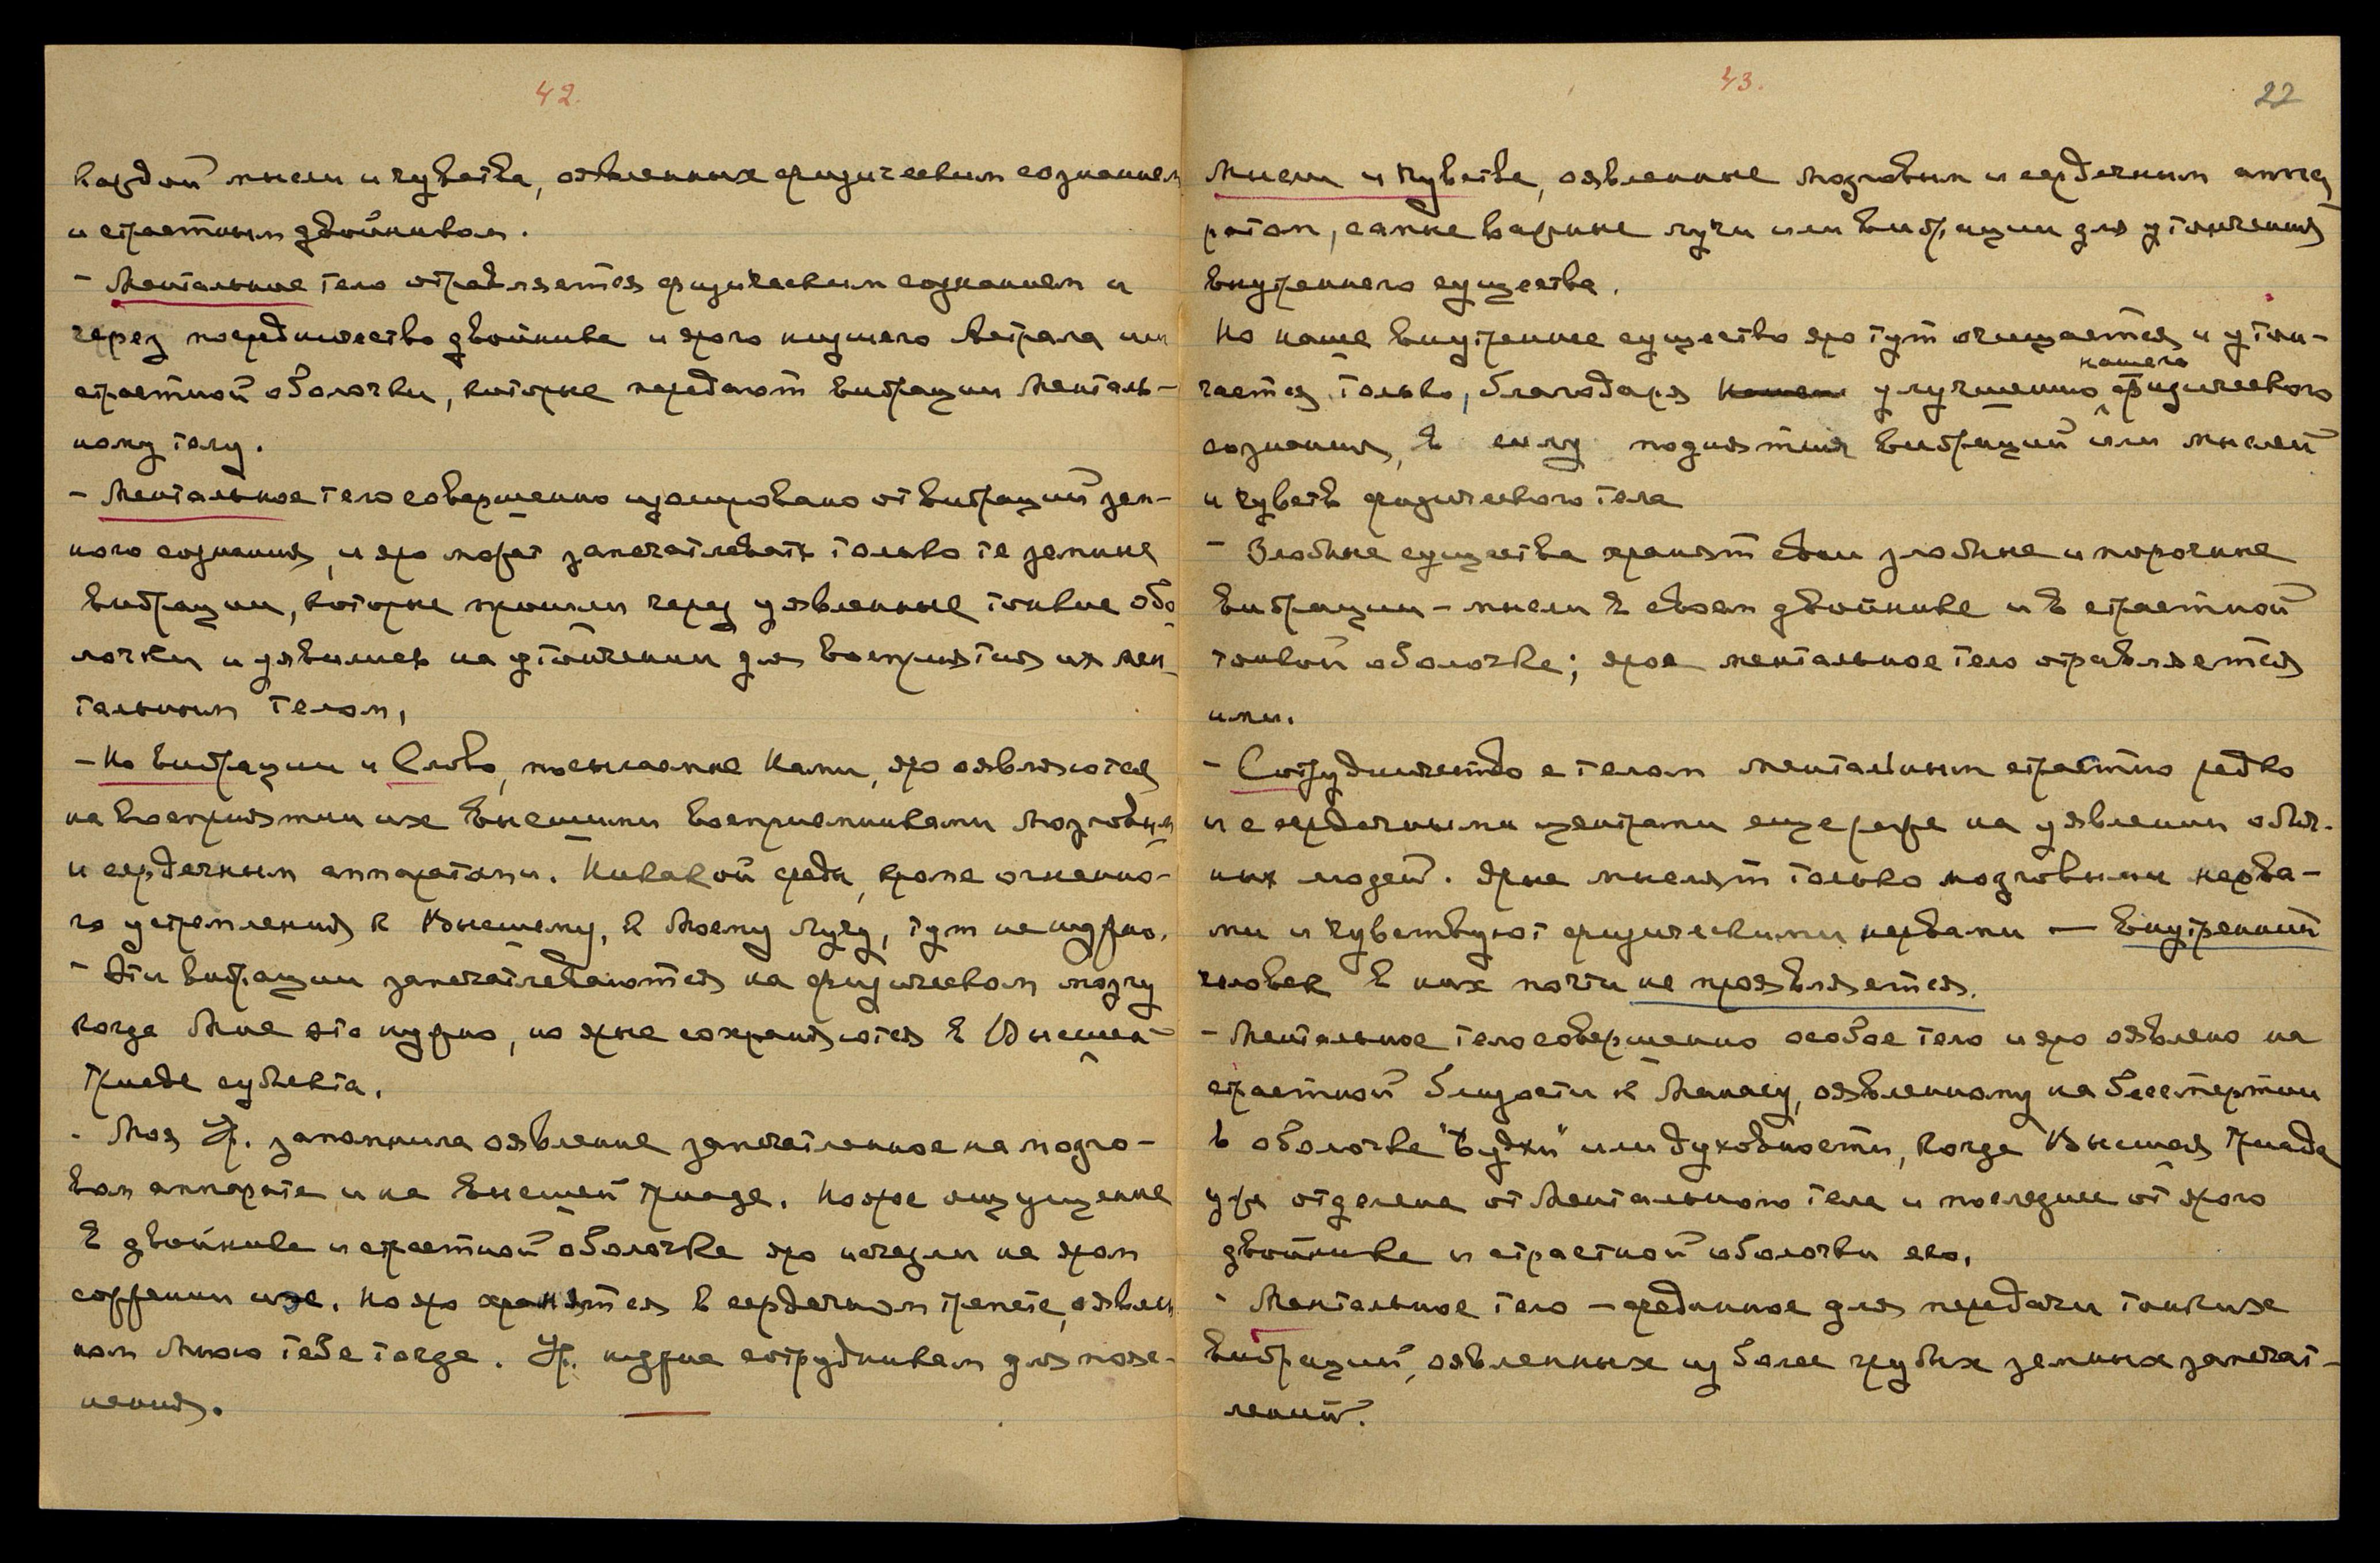 42.
каждой мысли и чувства, оявленных физическим сознанием
и страстным двойником.
- Ментальное тело отравляется физическим сознанием и
через посредничество двойника и ярого низшего Астрала или
страстной оболочки, которые передают вибрации Менталь-
ному телу.
- Ментальное тело совершенно изолировано от вибраций зем-
ного сознания, и яро может запечатлевать только те земные
вибрации, которые прошли через уявленные тонкие обо-
лочки и уявились на утончении для восприятия их мен-
тальным телом,
- Но вибрации и Слово, посылаемые Нами, яро оявляются
на восприятии их внешними восприемниками мозговым
и сердечным аппаратами. Никакой среды, кроме огненно-
го устремления к Высшему, к Моему Лучу, тут не нужно.
- Эти вибрации запечатлеваются на физическом мозгу
когда Мне это нужно, но ярые сохраняются в Высшей
Триаде субъекта.
- Моя Ур. запомнила оявление запечатленное на мозго-
вом аппарате и на высшей триаде. Но ярое ощущение
в двойнике и страстной оболочке яро исчезли на яром
сожжении их. Но яро хранятся в сердечном трепете, оявлен
ном Мною тебе тогда. Ур. нужна сотрудникам для пояс-
нения.
43.
22
Мысли и Чувства, оявленные Мозговым и сердечным аппа
ратом, самые важные лучи или вибрации для утончения
внутреннего существа.
Но наше внутреннее существо яро тут очищается и утон-
чается только, благодаря улучшению нашего физического
сознания, в силу поднятия вибраций или мыслей
и чувств физического тела
- Злобные существа хранят свои злобные и порочные
вибрации - мысли в своем двойнике и в страстной
тонкой оболочке; ярое ментальное тело отравляется
ими.
- Сотрудничество с телом ментальным страстно редко
и с сердечными центрами еще реже на уявлении обыч-
ных людей. Ярые мыслят только мозговыми нерва-
ми и чувствуют физическими нервами — внутренний
человек в них почти не проявляется.
- Ментальное тело совершенно особое тело и яро оявлено на
страстной близости к Манасу, оявленному на бессмертии
в оболочке "Будхи" или духовности, когда Высшая Триада
уже отделена от Ментального тела и последнее от ярого
двойника и страстной оболочки его.
- Ментальное тело - срединное для передачи тонких
вибраций, оявленных из более грубых земных запечат-
лений.